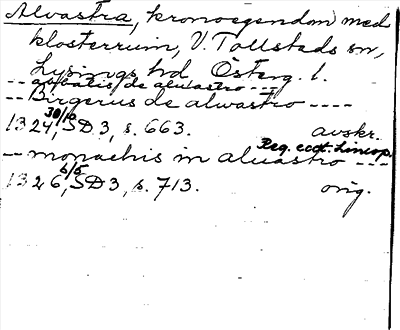 Alvastra, kronoegendom med
klosterruin, V. Tollstads sn,
Lysings hd, Österg. l.
-- abbatis de alwastro ---
-- Birgerus de alwastro ----
1324 30/10, SD 3, s. 663. avskr.
Reg. eccl. Lincop.
-- monachis in aluastro ---
1326 5/5, SD 3, s. 713. orig.